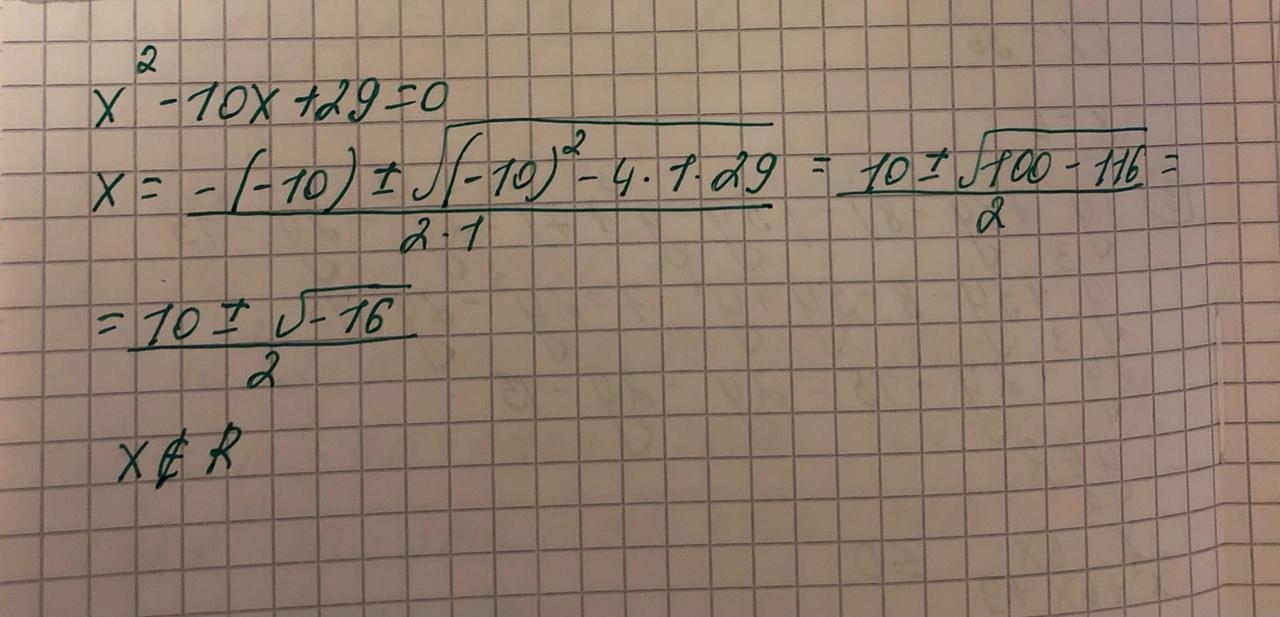 x² - 10x + 29 = 0
x = (-(-10) ± √((-10)² - 4·1·29)) / (2·1) = (10 ± √(100 - 116)) / 2 =
= (10 ± √(-16)) / 2
x ∉ R